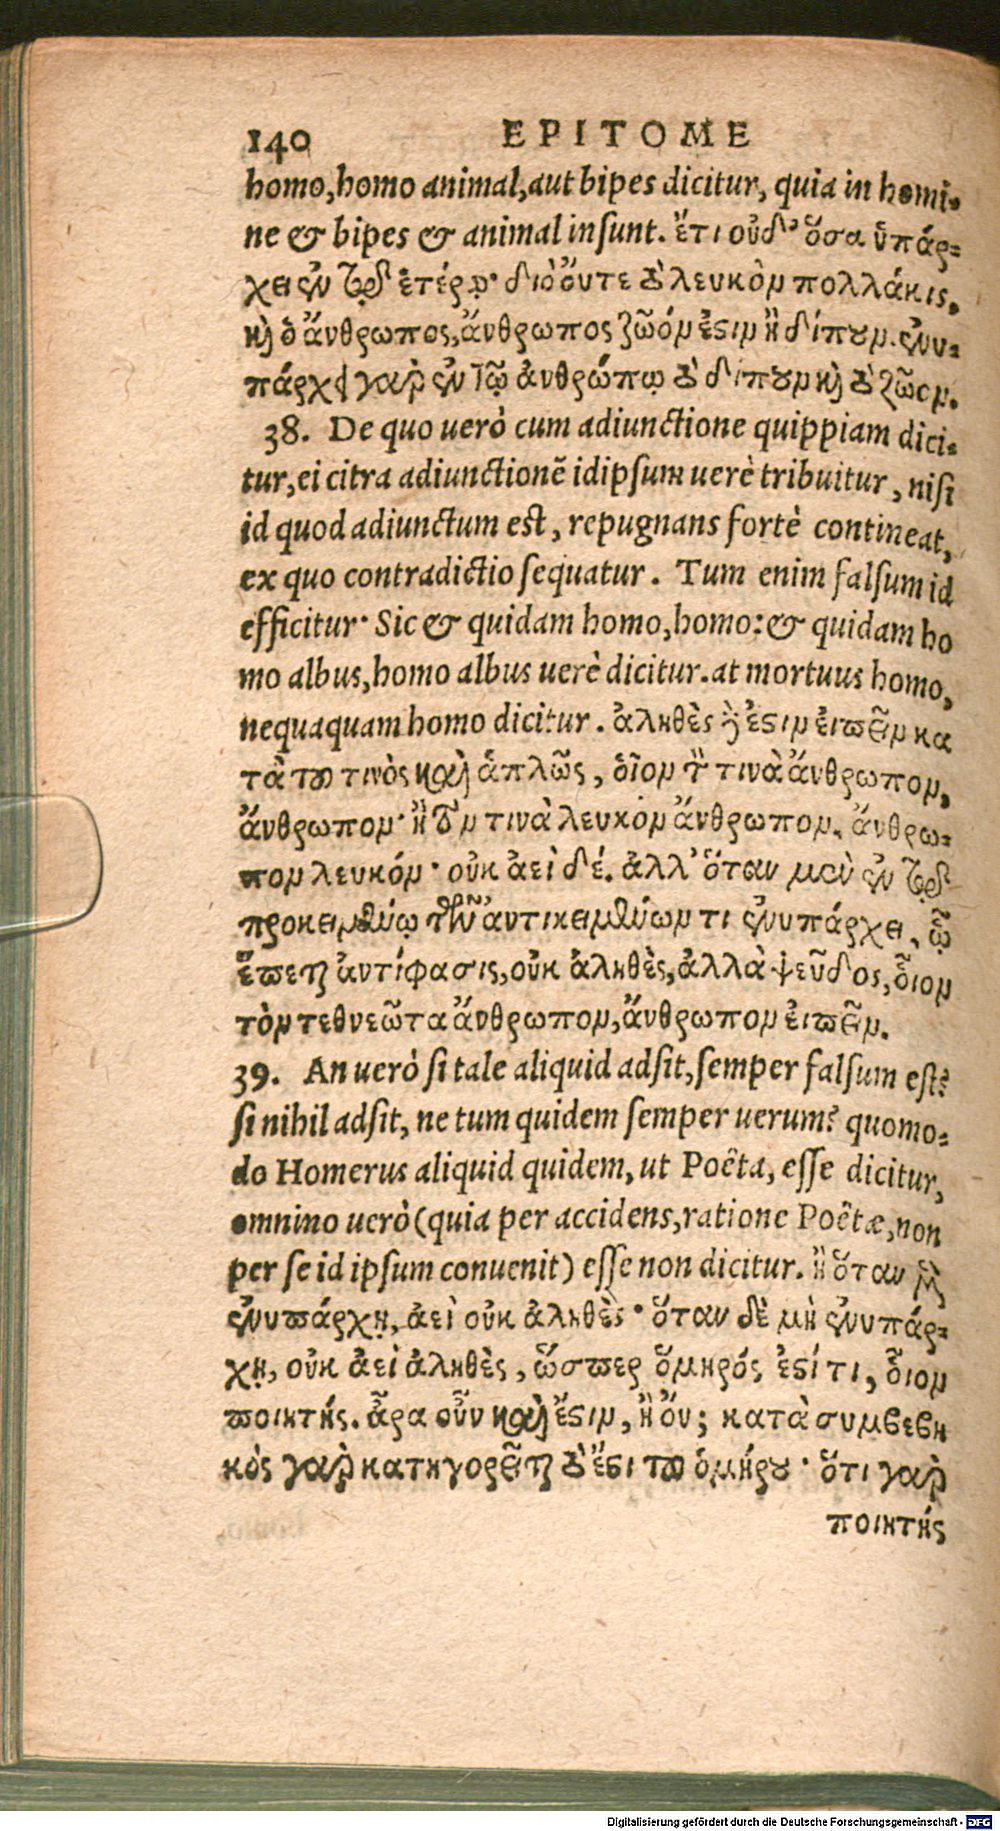 140 EPITOME
homo, homo animal, aut bipes dicitur, quia in homi-
ne & bipes & animal insunt. ἔτι οὐδ' ὅσα ὑπάρ-
χει ἐν τῷ ἑτέρῳ· διὸ οὔτε τὸ λευκὸν πολλάκις,
καὶ ὁ ἄνθρωπος, ἄνθρωπος ζῶόν ἐστιν ἢ δίπουν. ἐνυ-
πάρχει γὰρ ἐν τῷ ἀνθρώπῳ τὸ δίπουν καὶ τὸ ζῶον.
38. De quo uerò cum adiunctione quippiam dici-
tur, ei citra adiunctionē idipsum uerè tribuitur, nisi
id quod adiunctum est, repugnans fortè contineat,
ex quo contradictio sequatur. Tum enim falsum id
efficitur· Sic & quidam homo, homo: & quidam ho
mo albus, homo albus uerè dicitur. at mortuus homo,
nequaquam homo dicitur. ἀληθὲς δέ ἐστιν εἰπεῖν κα
τὰ τοῦ τινὸς καὶ ἁπλῶς, οἷον τὸν τινὰ ἄνθρωπον,
ἄνθρωπον· ἢ τὸν τινὰ λευκὸν ἄνθρωπον, ἄνθρω-
πον λευκόν· οὐκ ἀεὶ δέ. ἀλλ' ὅταν μὲν ἐν τῷ
προκειμένῳ τῶν ἀντικειμένων τι ἐνυπάρχει, ᾧ
ἕπεται ἀντίφασις, οὐκ ἀληθὲς, ἀλλὰ ψεῦδος, οἷον
τὸν τεθνεῶτα ἄνθρωπον, ἄνθρωπον εἰπεῖν.
39. An uerò si tale aliquid adsit, semper falsum est?
si nihil adsit, ne tum quidem semper uerum? quomo-
do Homerus aliquid quidem, ut Poêta, esse dicitur,
omnino uerò (quia per accidens, ratione Poêtæ, non
per se id ipsum conuenit) esse non dicitur. ἢ ὅταν μὲν
ἐνυπάρχῃ, ἀεὶ οὐκ ἀληθὲς· ὅταν δὲ μὴ ἐνυπάρ-
χῃ, οὐκ ἀεὶ ἀληθὲς, ὥσπερ ὅμηρός ἐστί τι, οἷον
ποιητής. ἆρα οὖν καὶ ἔστιν, ἢ οὔ; κατὰ συμβεβη
κὸς γὰρ κατηγορεῖται τὸ ἔστι τοῦ ὁμήρου· ὅτι γὰρ
ποιητής
Digitalisierung gefördert durch die Deutsche Forschungsgemeinschaft - DFG